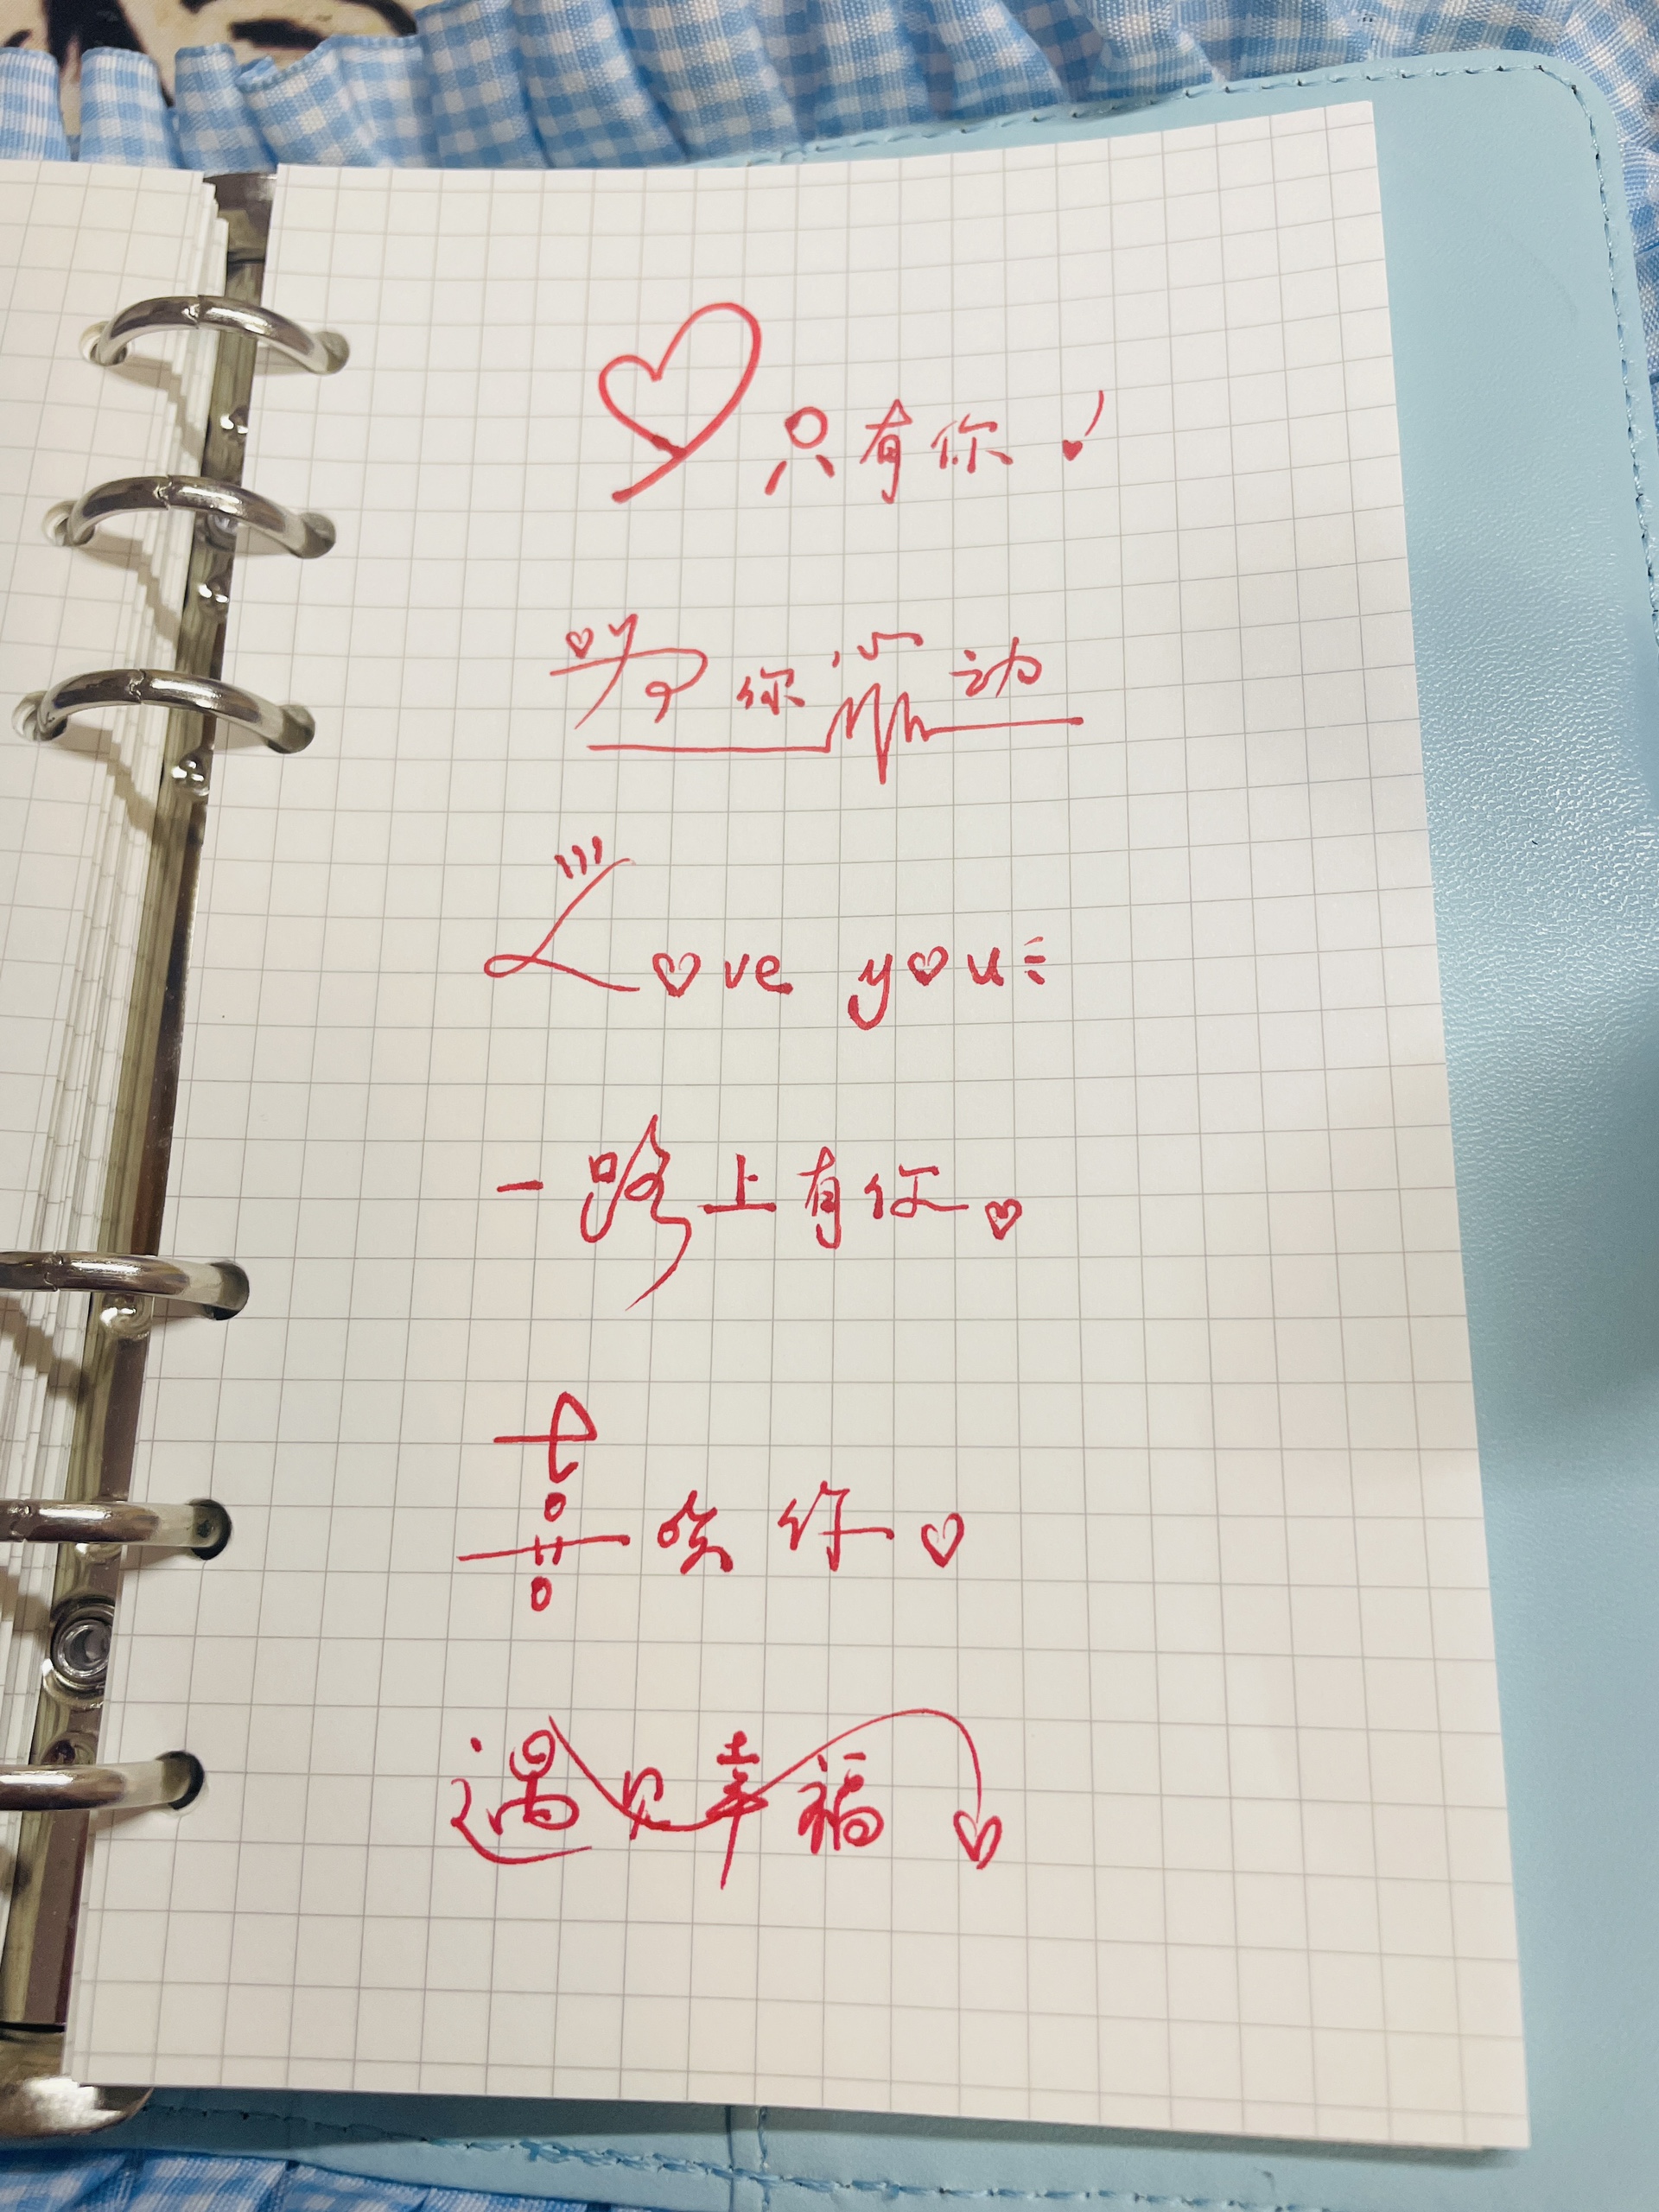 只有你!
为你心动
Love you
一路上有你
喜欢你
遇见幸福